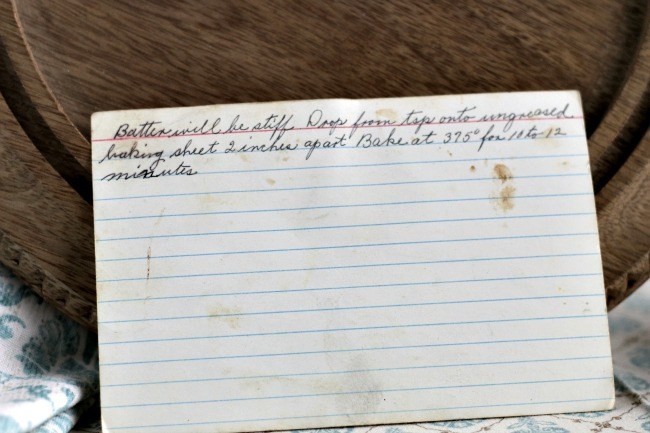 Batter will be stiff Drop from tsp onto ungreased
baking sheet 2 inches apart Bake at 375° for 10 to 12
minutes